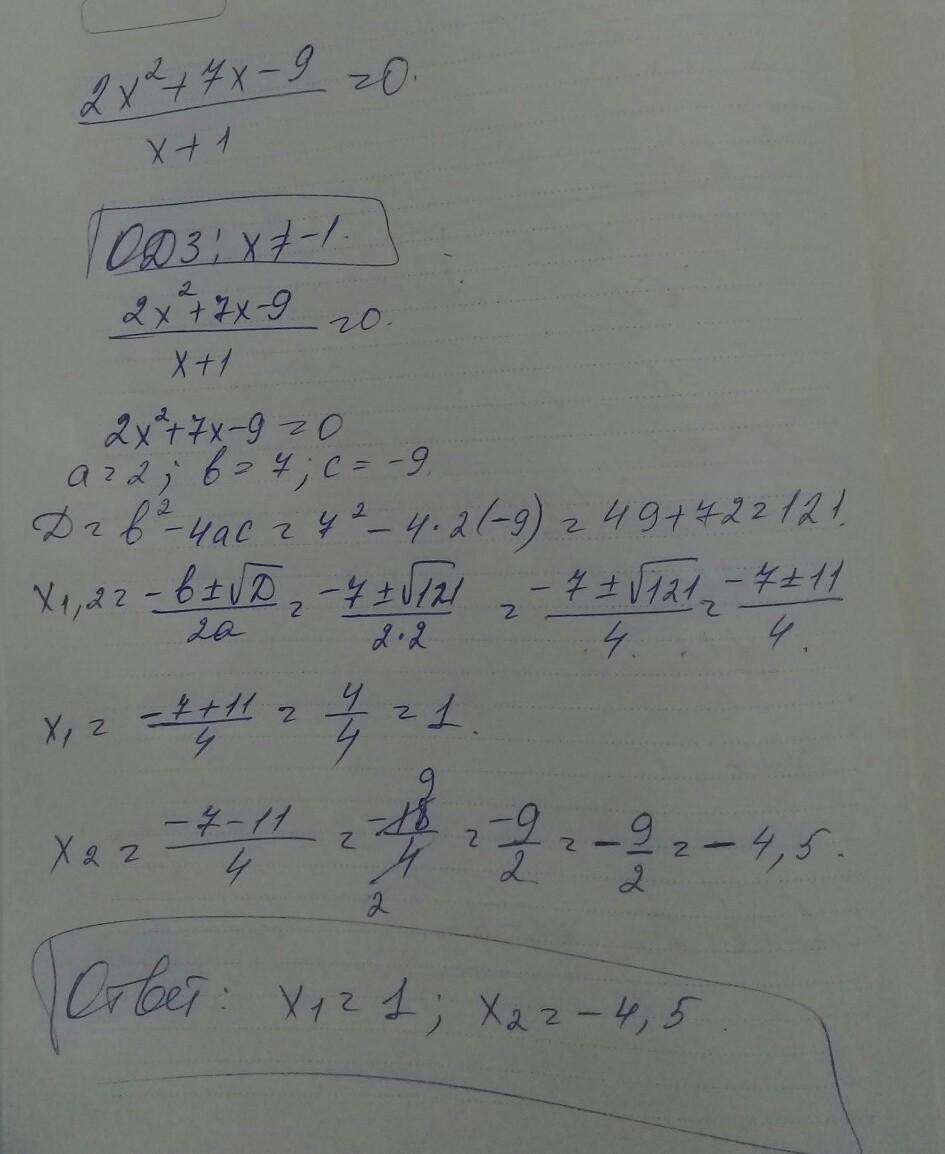 (2x²+7x-9)/(x+1) = 0.
ОДЗ: x≠-1.
(2x²+7x-9)/(x+1) = 0.
2x²+7x-9=0
a=2; в=7; c=-9.
Д=в²-4ac=7²-4·2(-9)=49+72=121.
x1,2 = (-в±√D)/(2a) = (-7±√121)/(2·2) = (-7±√121)/4 = (-7±11)/4.
x1 = (-7+11)/4 = 4/4 = 1.
9
x2 = (-7-11)/4 = -18/4 = -9/2 = -9/2 = -4,5.
2
Ответ: x1=1; x2=-4,5.